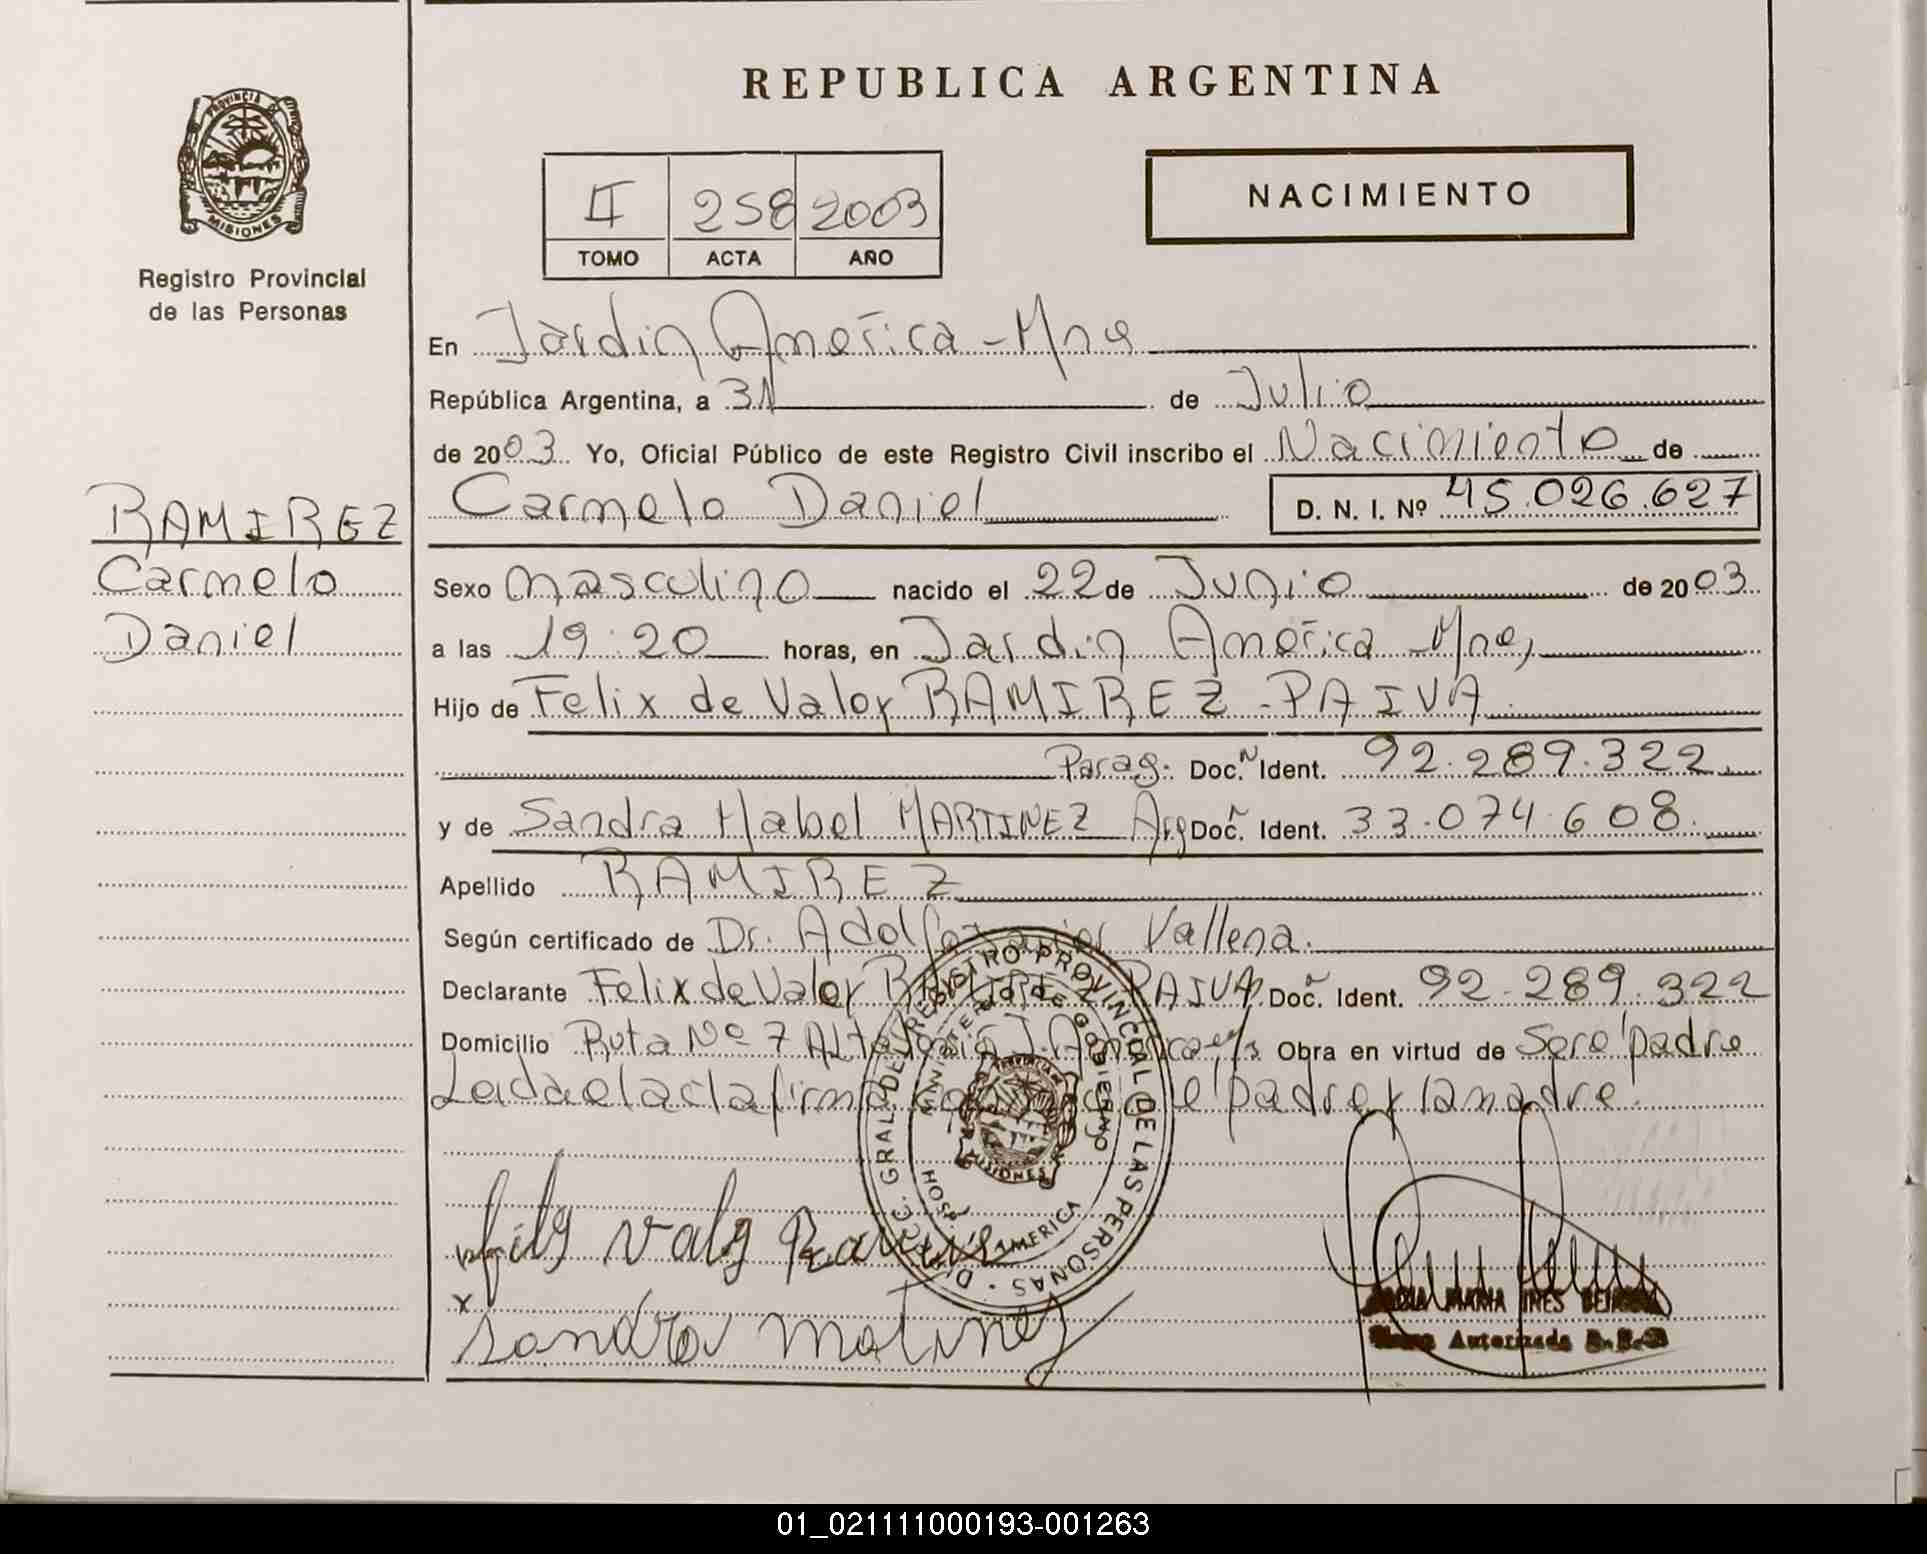 REPUBLICA ARGENTINA
PROVINCIA DE
MISIONES
Registro Provincial
de las Personas
II 258 2003
TOMO ACTA AÑO
NACIMIENTO
En Jardin America - Mnes
República Argentina, a 31 de Julio
de 2003 Yo, Oficial Público de este Registro Civil inscribo el Nacimiento de
Carmelo Daniel D. N. I. Nº 45.026.627
RAMIREZ
Carmelo
Daniel
Sexo masculino nacido el 22 de Junio de 2003
a las 19:20 horas, en Jardin America Mnes,
Hijo de Felix de Valoy RAMIREZ - PAIVA
Parag. Doc. Ident. 92.289.322
y de Sandra Mabel MARTINEZ Arg Doc. Ident. 33.074.608
Apellido RAMIREZ
Según certificado de Dr. Adolfo Javier Vallena
Declarante Felix de Valoy RAMIREZ PAIVA Doc. Ident. 92.289.322
Domicilio Ruta Nº 7 J. America Obra en virtud de Ser el padre
Leida el acta firma el padre y la madre.
DIREC. GRAL DE REGISTRO PROVINCIAL DE LAS PERSONAS
MINISTERIO DE GOBIERNO
PROVINCIA DE
MISIONES
HOSP. AMERICA
x
Sandra Matinez
MARIA INES
Autorizada
01_021111000193-001263